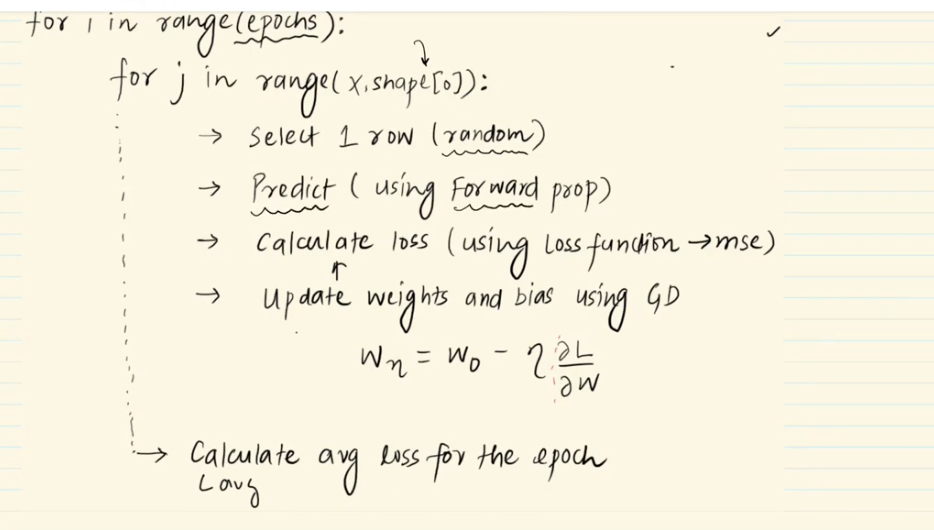 for i in range(epochs):
for j in range(x.shape[0]):
→ Select 1 row (random)
→ Predict (using Forward prop)
→ Calculate loss (using Loss function → mse)
→ Update weights and bias using GD
Wn = Wo - η ∂L/∂W
→ Calculate avg loss for the epoch
Lavg